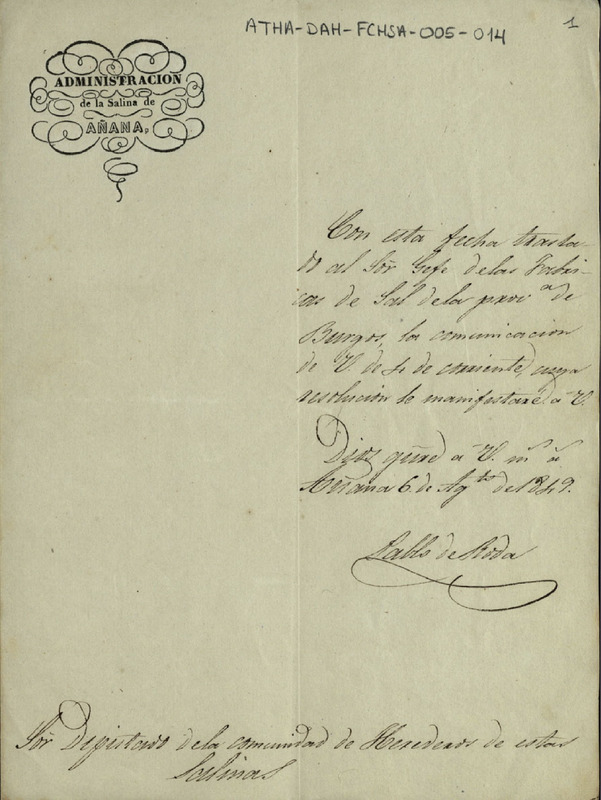 ATHA-DAH-FCHSA-005-014
1
ADMINISTRACION
de la Salina de
AÑANA,
Con esta fecha trasla-
do al Sôr Gefe delas Fabri-
cas de Sal dela provª de
Burgos, la comunicacion
de V. de 4 de corriente, cuya
resolucion le manifestaré á V.
Dios gûe á V. mˢ aˢ
Añana 6 de Agᵗᵒ de 1849.
Pablo de Roda
Sôr Diputado dela comunidad de Herederos de estas
Salinas